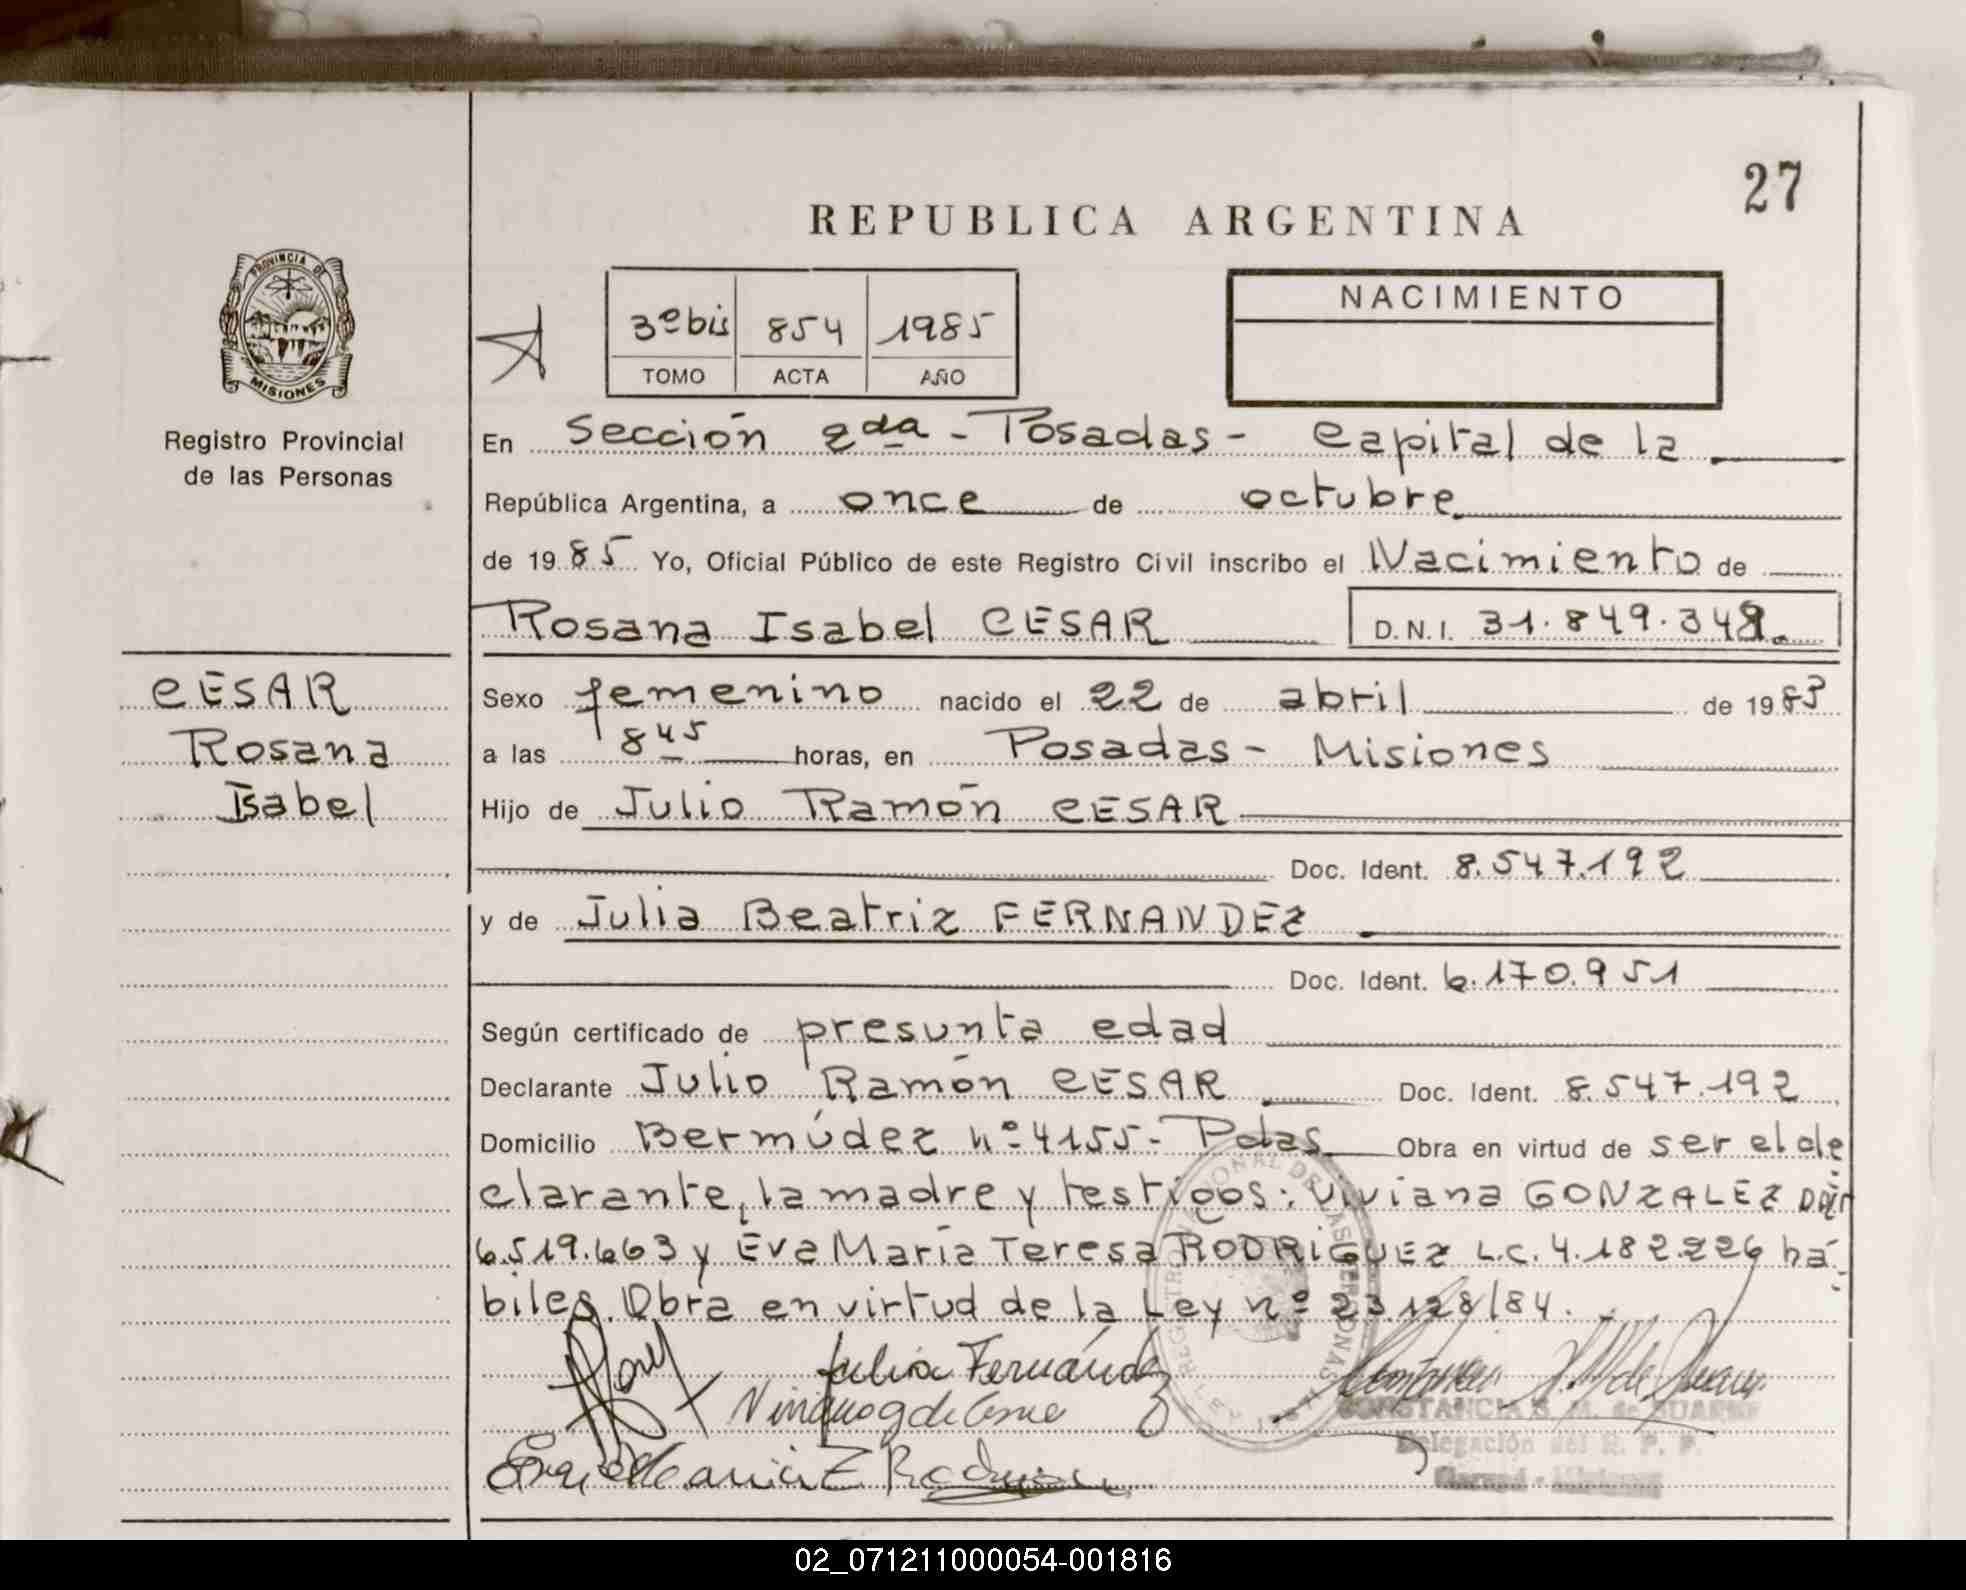 27
REPUBLICA ARGENTINA
PROVINCIA DE
MISIONES
Registro Provincial
de las Personas
3º bis 854 1985
TOMO ACTA AÑO
NACIMIENTO
En Sección 2da - Posadas - Capital de la
República Argentina, a once de octubre
de 1985 Yo, Oficial Público de este Registro Civil inscribo el Nacimiento de
Rosana Isabel CESAR D.N.I. 31.849.349.
CESAR
Rosana
Isabel
Sexo femenino nacido el 22 de abril de 1983
a las 8 45 horas, en Posadas - Misiones
Hijo de Julio Ramón CESAR
Doc. Ident. 8.547.192
y de Julia Beatriz FERNANDEZ
Doc. Ident. 6.170.951
Según certificado de presunta edad
Declarante Julio Ramón CESAR Doc. Ident. 8.547.192
Domicilio Bermúdez nº 4155 - Pdas Obra en virtud de ser el de
clarante, la madre y testigos: Viviana GONZALEZ
6.519.663 y Eva María Teresa RODRIGUEZ L.C. 4.182.226 há-
biles. Obra en virtud de la Ley nº 23.128/84.
Julia Fernández
CONSTANCIA S. M. de SUAREZ
Delegación del R. P. P.
02_071211000054-001816